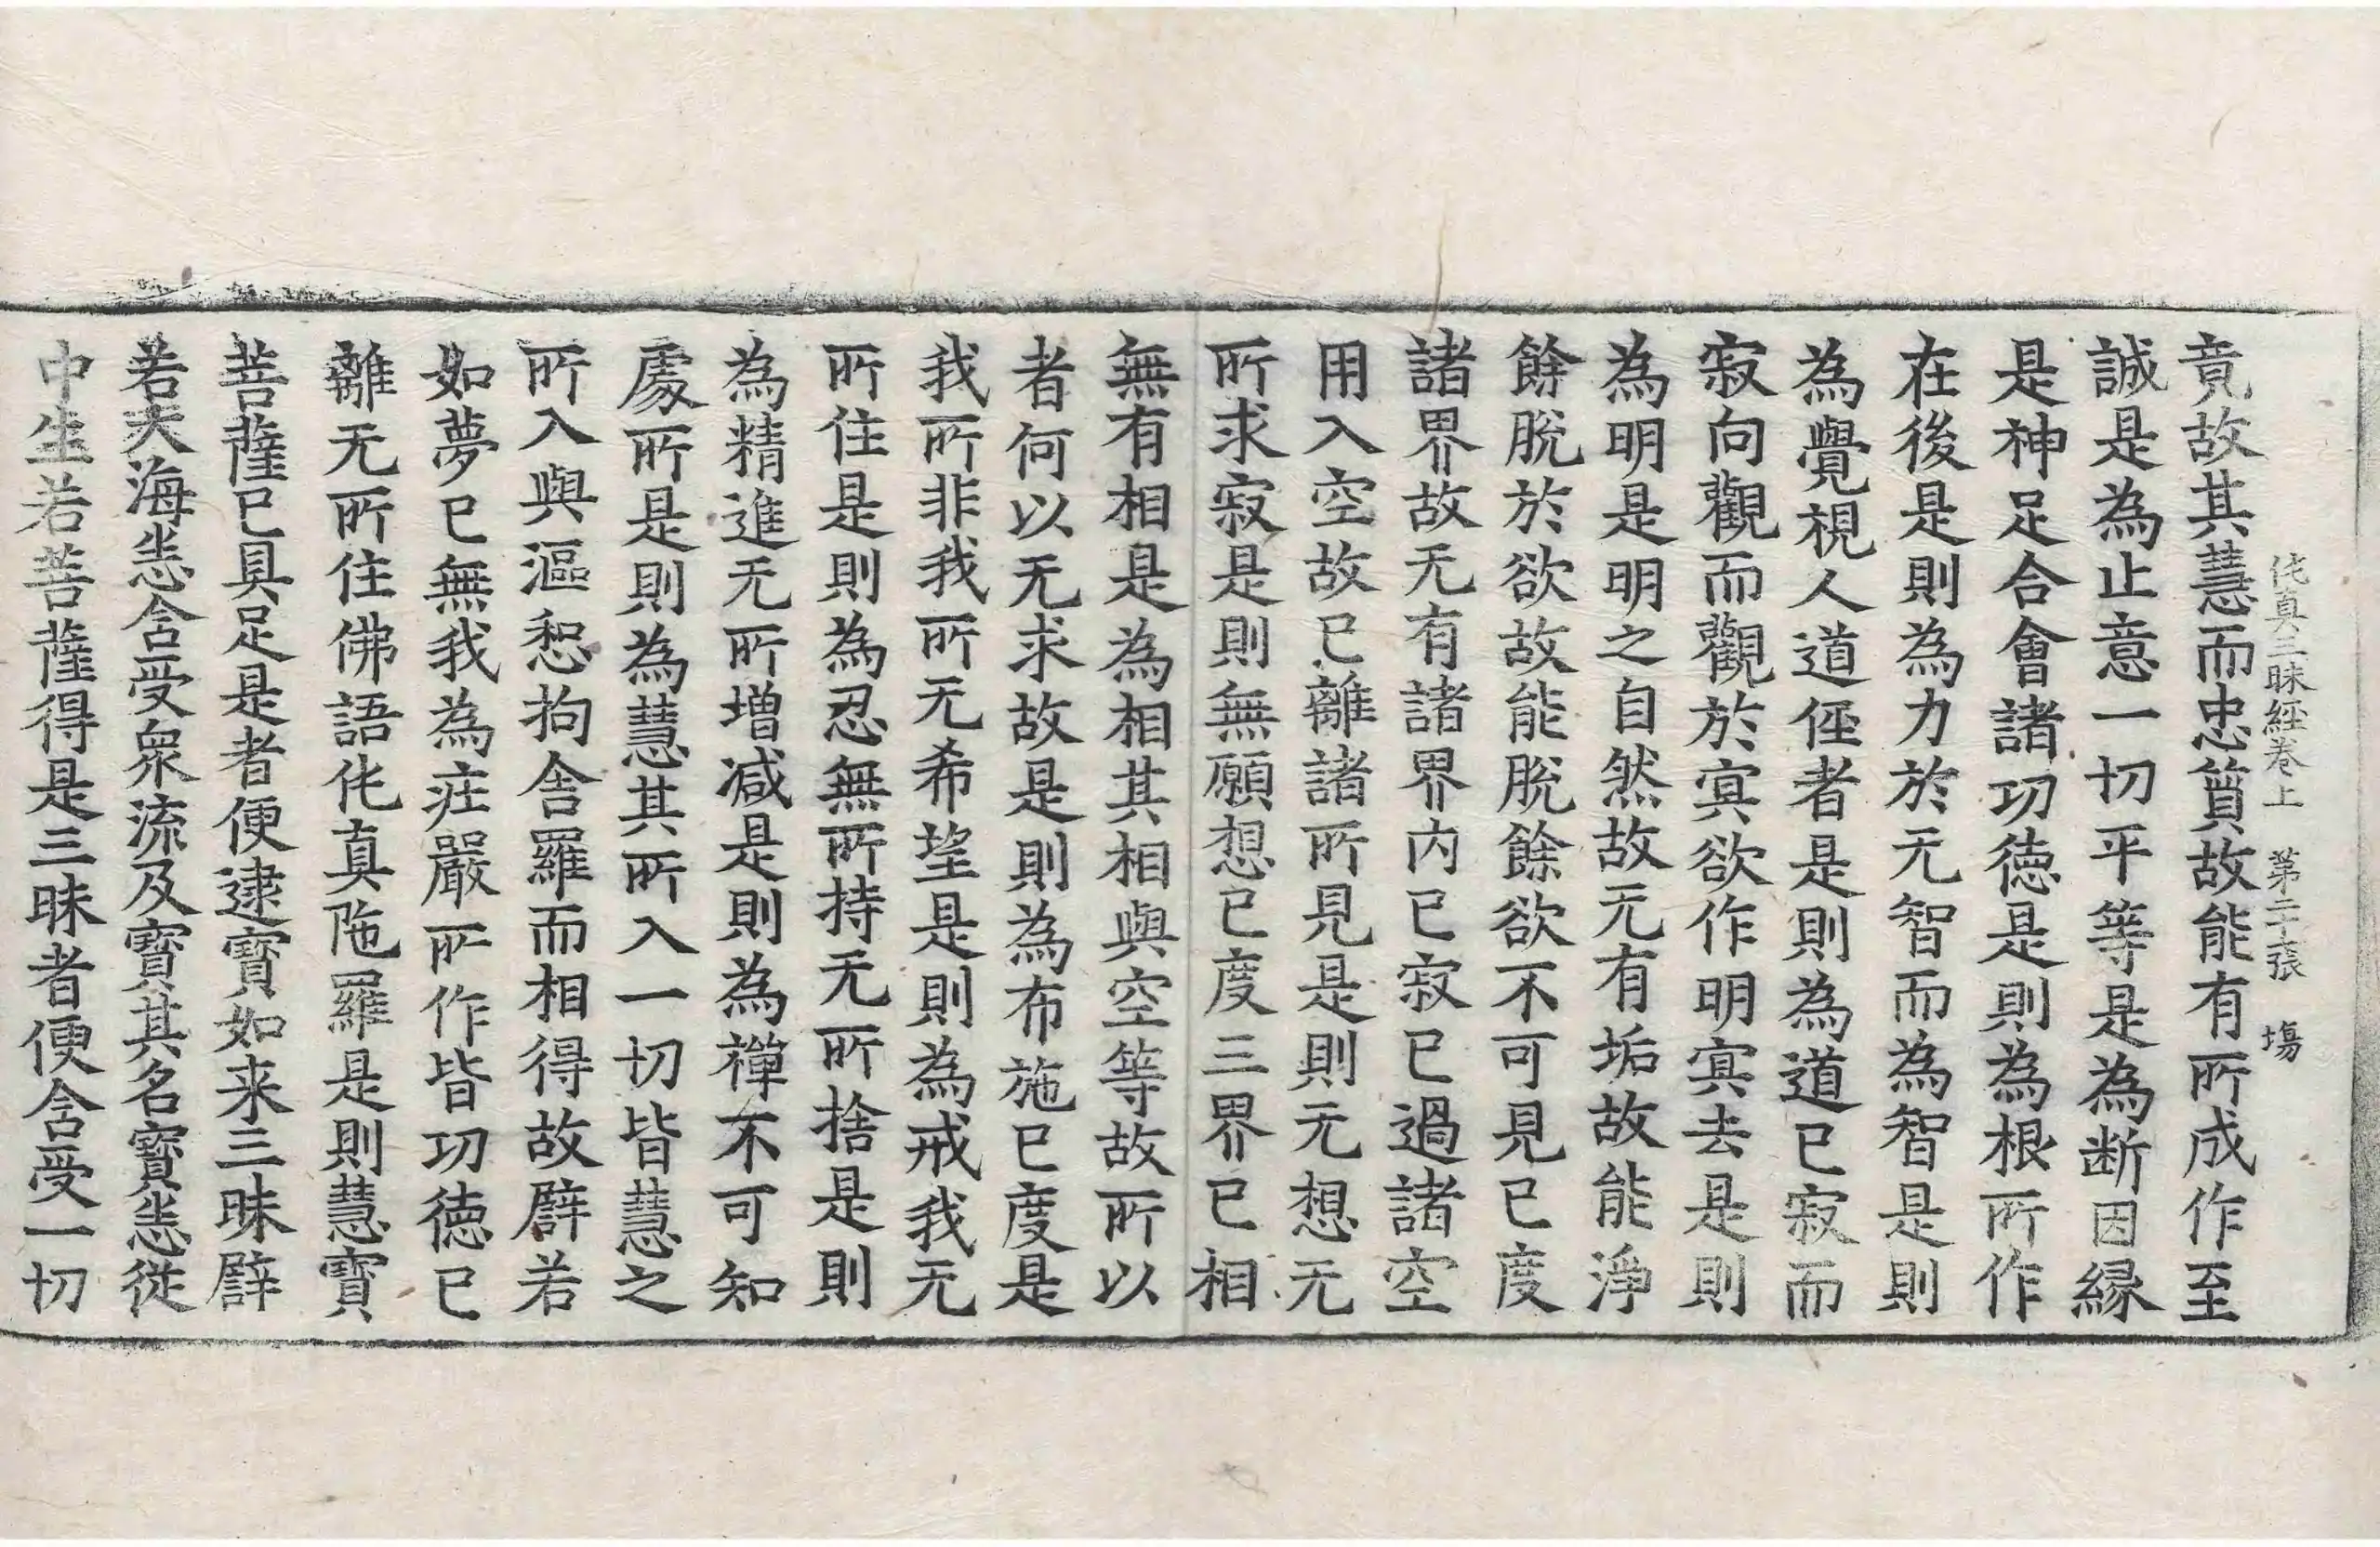 伅真三昧經卷上 第二十張 塲
竟故其慧而忠質故能有所成作至
誠是為止意一切平等是為断因縁
是神足合會諸功徳是則為根所作
在後是則為力於无智而為智是則
為覺視人道俓者是則為道已寂而
寂向觀而觀於㝠欲作明㝠去是則
為明是明之自然故无有垢故能淨
餘脫於欲故能脫餘欲不可見已度
諸界故无有諸界内已寂已過諸空
用入空故已離諸所見是則无想无
所求寂是則無願想已度三界已相
無有相是為相其相與空等故所以
者何以无求故是則為布施已度是
我所非我所无希望是則為戒我无
所住是則為忍無所持无所捨是則
為精進无所増减是則為禪不可知
處所是則為慧其所入一切皆慧之
所入與漚惒拘舎羅而相得故辟若
如夢已無我為疘嚴所作皆功徳已
離无所住佛語伅真陁羅是則慧寳
菩薩已具足是者便逮寳如来三昧辟
若大海悉含受衆流及寳其名寳悉従
中生若菩薩得是三昧者便含受一切